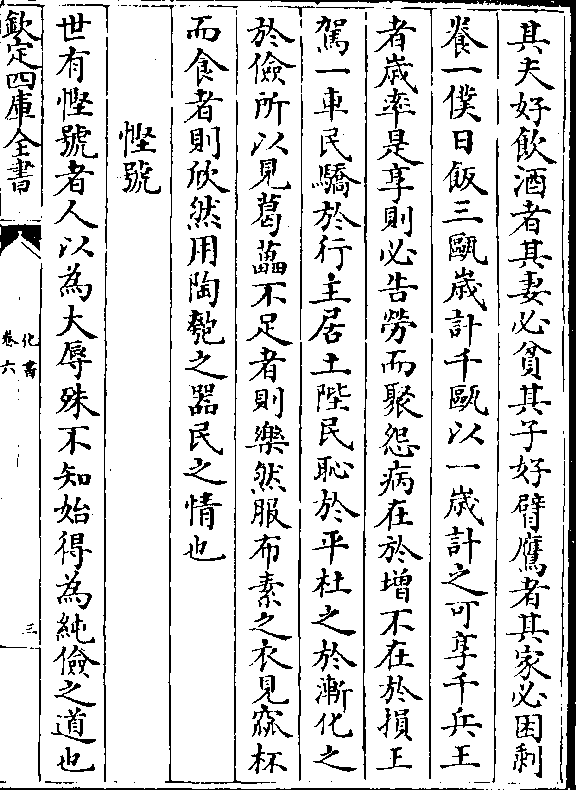 其夫好飲酒者其妻必貧其子好臂鷹者其家必困剩
養一僕日飯三甌歲計千甌以一歲計之可享千兵王
者歲率是享則必告勞而聚怨病在於增不在於損王
駕一車民驕於行主居土陛民恥於平杜之於漸化之
於儉所以見葛藟不足者則樂然服布素之衣見窳杯
而食者則欣然用陶匏之器民之情也
慳號
世有慳號者人以為大辱殊不知始得為純儉之道也
欽定四庫全書
化書
卷六
三